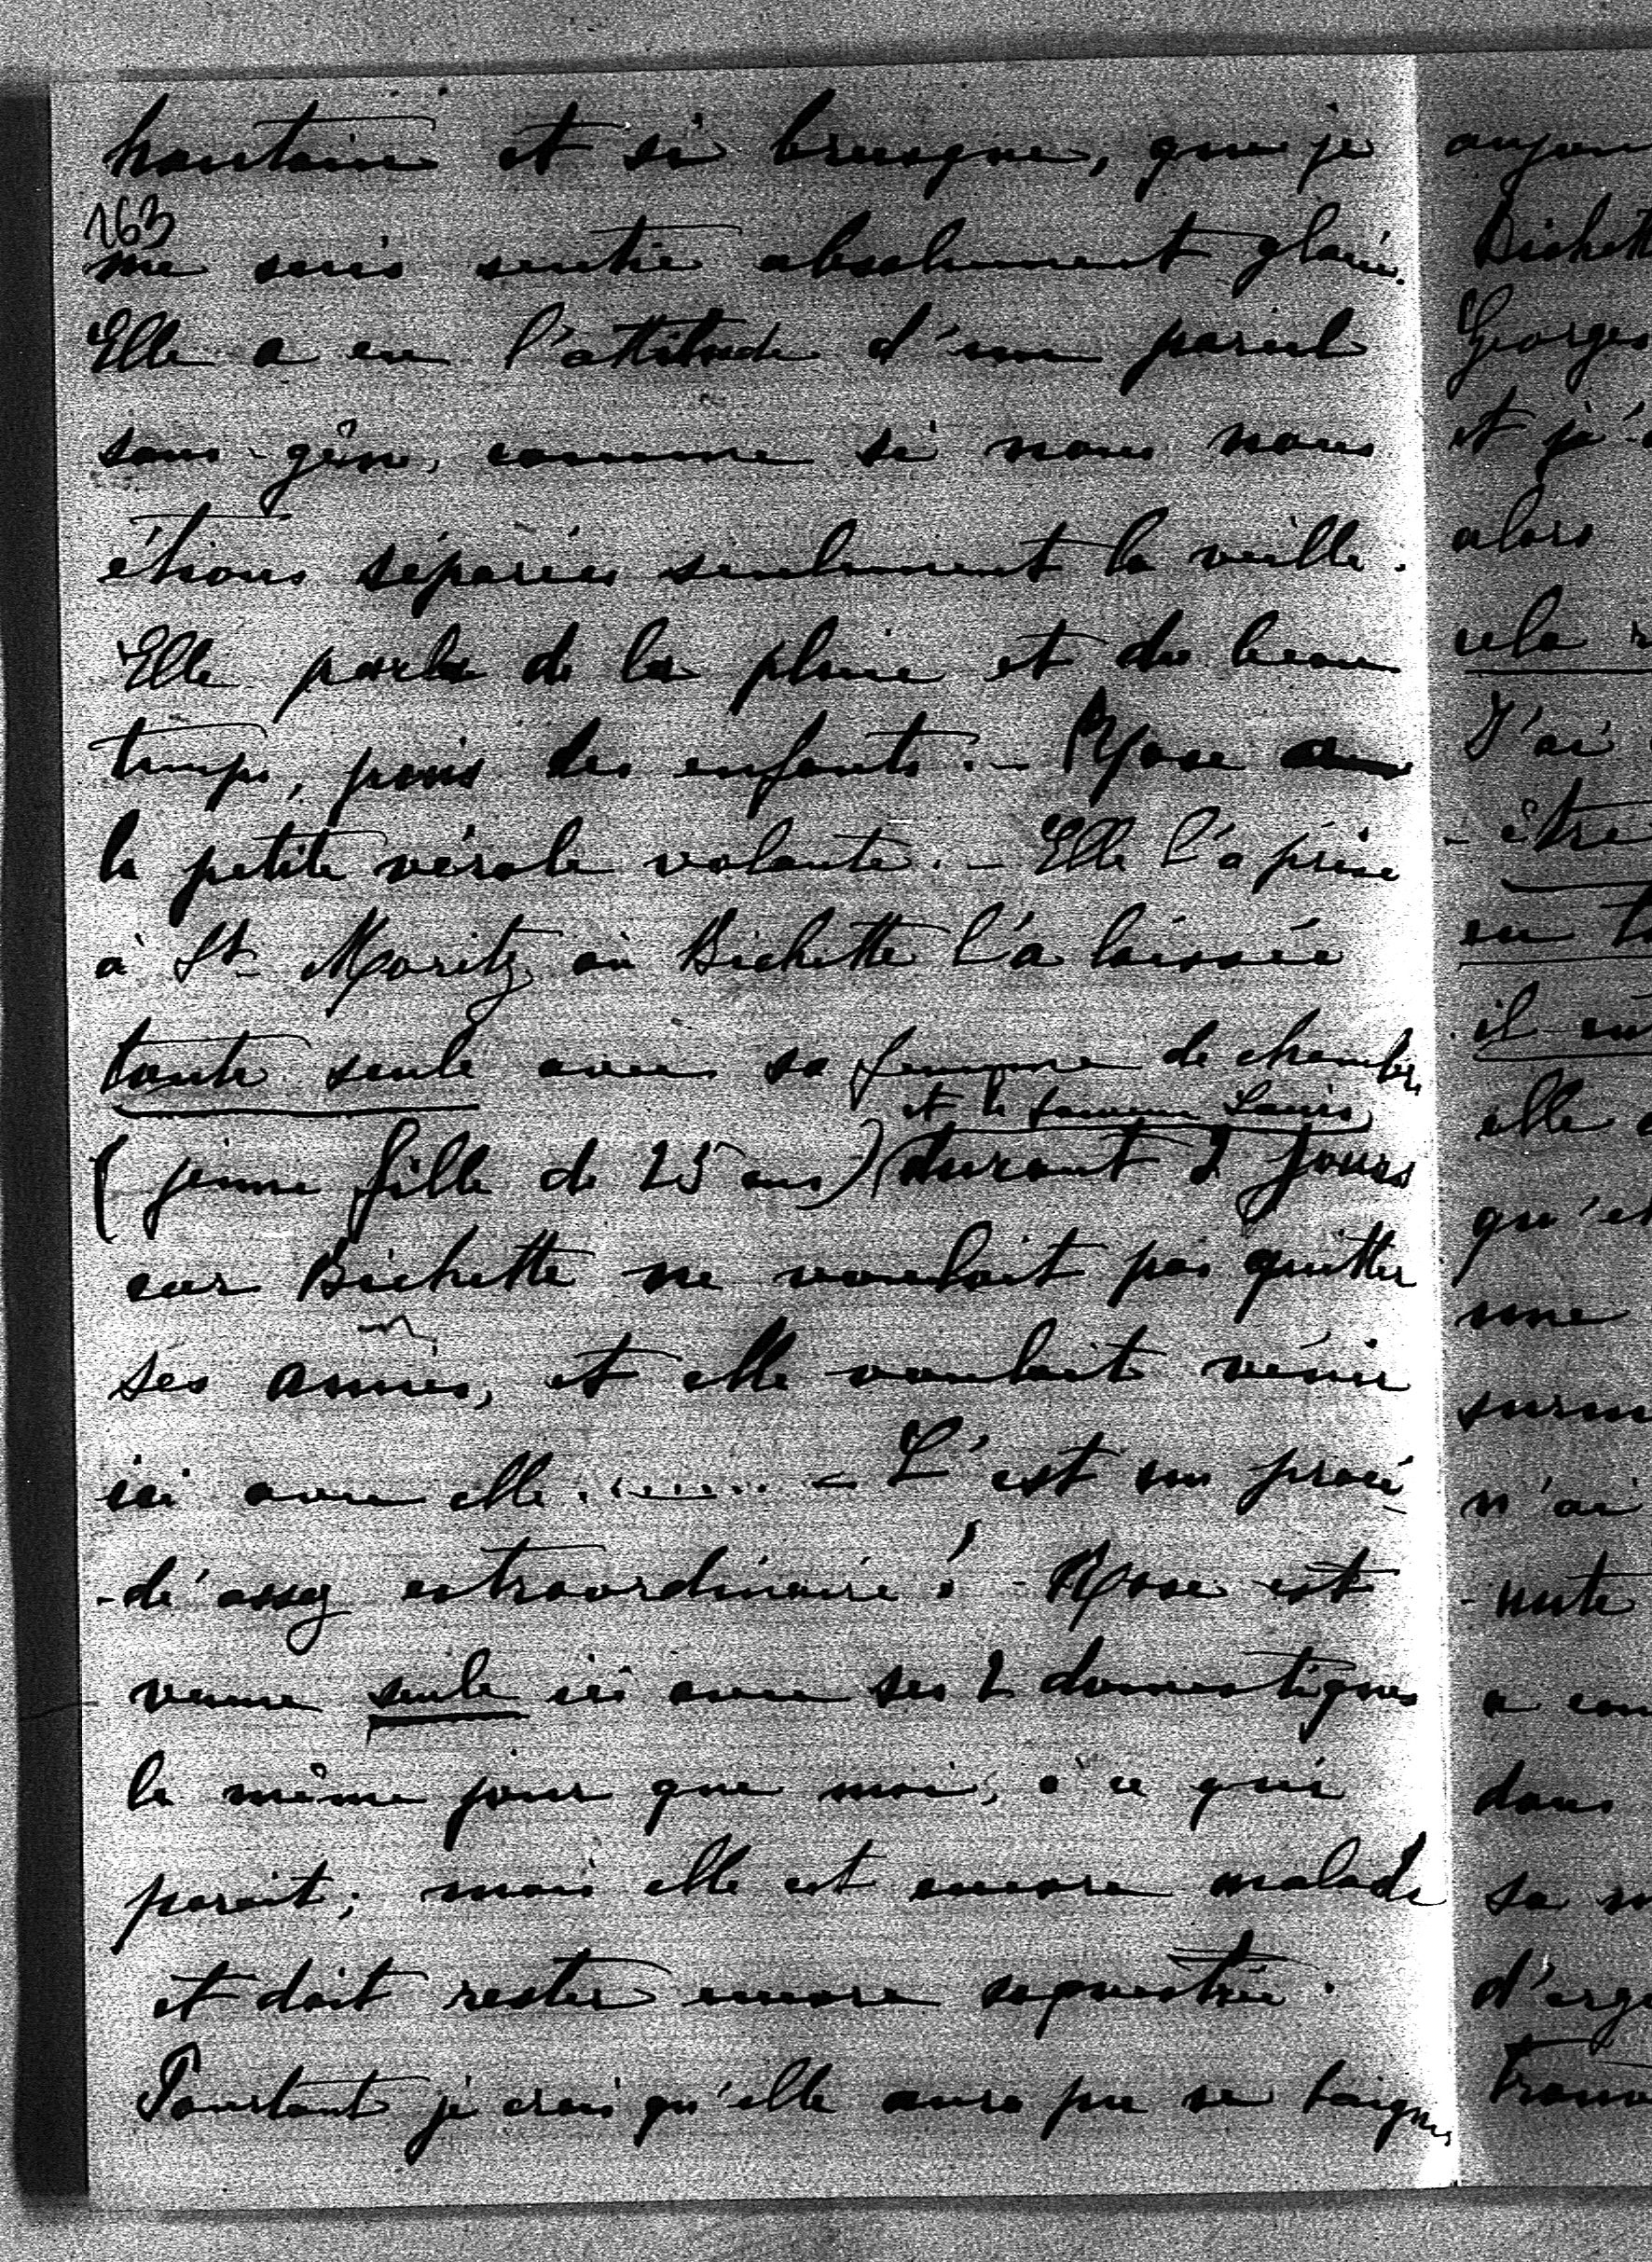 hautaine et si brusque, que je
163
me suis sentie absolument glacée.
Elle a eu l'attitude d'un pareil
sans-gêne, comme si nous nous
étions séparées seulement la veille.
Elle parla de la pluie et du beau
temps, puis des enfants. – Rose a
la petite vérole volante. – Elle l'a prise
à St. Moritz où Bichette l'a laissée
toute seule avec sa femme de chambre
et le fameux Louis
(jeune fille de 25 ans) durant 2 jours
car Bichette ne voulait pas quitter
ses amies, et elle voulait venir
ici avec elle ........ – C'est un procé
-dé assez extraordinaire! - Rose est
venue seule ici avec ses 2 domestiques
le même jour que moi, à ce qui
parait; mais elle est encore malade
et doit rester encore sequestrée.
Pourtant je crois qu'elle aura pu se baigner
aujour
Bichett
Georges
et j'
alors
cela
J'ai
- être
en t
il
elle
qu'el
une
surm
n'ai
- nute
a con
dans
sa
d'arg
trouv